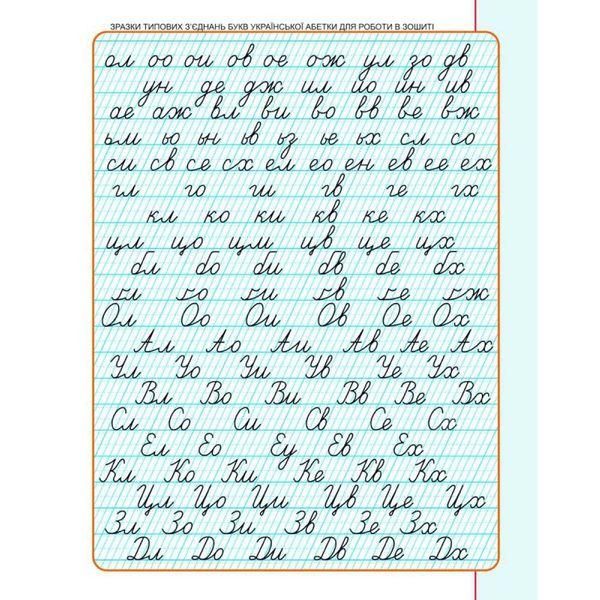 ЗРАЗКИ ТИПОВИХ З'ЄДНАНЬ БУКВ УКРАЇНСЬКОЇ АБЕТКИ ДЛЯ РОБОТИ В ЗОШИТІ
ол оо ои ов ое ож ул зо дв
ун де дж ил йо йн ив
ае аж вл ви во вв ве вж
ьм ьо ьн ьв ьз ье ьх сл со
си св се сх ел ео ен ев ее ех
гл го ги гв ге гх
кл ко ки кв ке кх
цл цо ци цв це цх
бл бо би бв бе бх
Ол Оо Ои Ов Ое Ох
Ал Ао Аи Ав Ае Ах
Ул Уо Уи Ув Уе Ух
Вл Во Ви Вв Ве Вх
Сл Со Си Св Се Сх
Ел Ео Еу Ев Ех
Кл Ко Ки Ке Кв Кх
Цл Цо Ци Цв Це Цх
Зл Зо Зи Зв Зе Зх
Дл До Ди Дв Де Дх